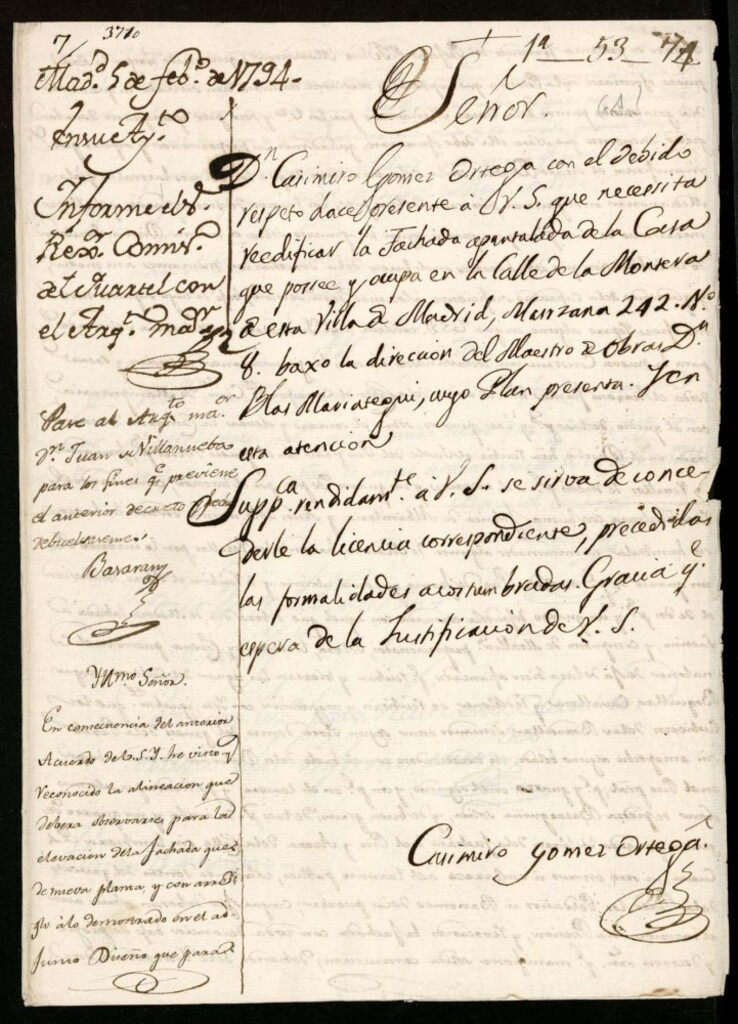 7 3710
Mad.d 5 de feb.o de 1794.
En su Ay.to
Informe el S.
Rex.or Comis.o
del Quartel con
el Arq.to mayor
Pase al Arq.to ma.or
Dn. Juan de Villanueba
para los fines q.e previene
el anterior decreto
Basaran
Yllmo. Señor.
En consecuencia del anterior
Acuerdo de V.S.Y. he visto y
reconocido la alineacion que
debera observarse para la
elevacion de la fachada que es
de nueva planta, y con arre-
glo à lo demostrado en el ad-
junto Diseño que para
1a 53 74
Señor.
D.n Casimiro Gomez Ortega con el debido
respeto hace presente à V. S. que necessita
reedificar la Fachada apuntalada de la Casa
que posee y ocupa en la Calle de la Montera
de esta Villa de Madrid, Manzana 242. N.o
8. baxo la direccion del Maestro de Obras D.n
Blas Mariategui, cuyo Plan presenta. Y en
esta atencion
Supp.ca rendidam.te à V. S. se sirva de conce-
derle la licencia correspondiente, precedidas
las formalidades acostumbradas. Gracia q.e
espera de la Justificacion de V. S.
Casimiro Gomez Ortega.